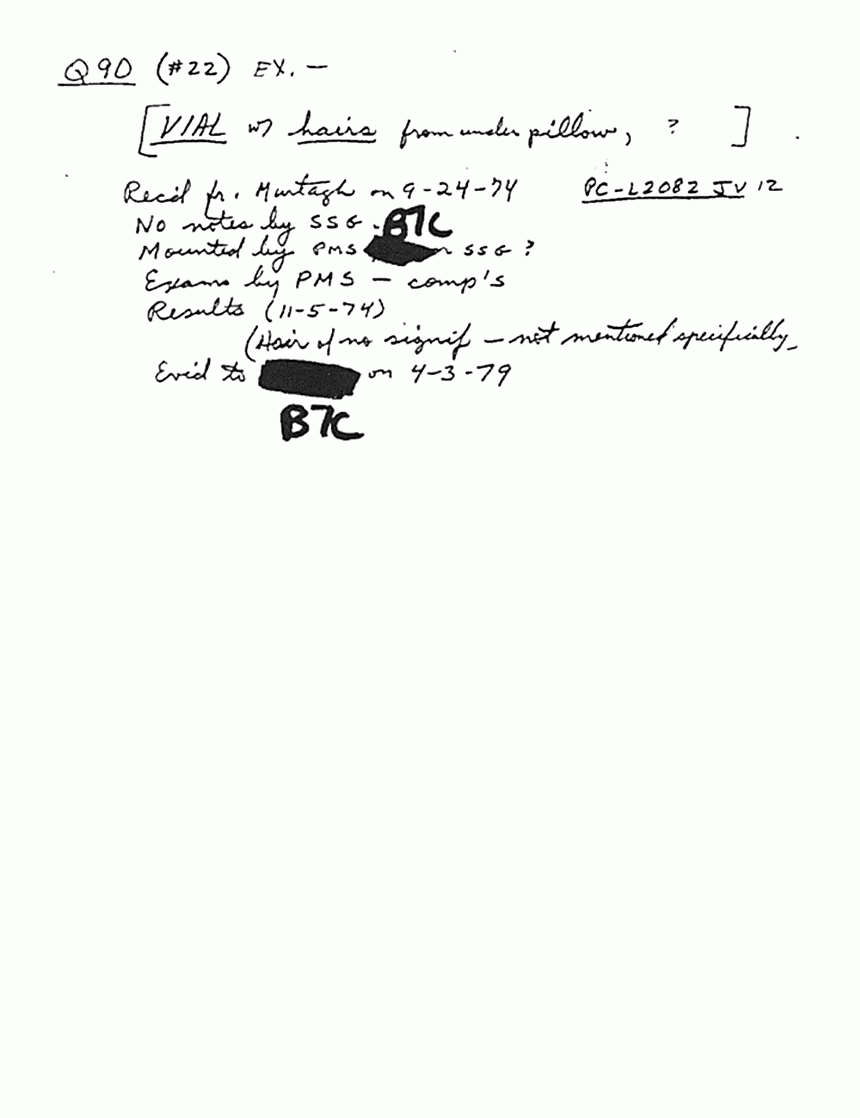 Q90 (#22) EX. —
[VIAL w/ hairs from under pillow, ? ]
Rec'd fr. Murtagh on 9-24-74 PC-L2082 JV 12
No notes by SSG. B7C
Mounted by PMS or SSG ?
Exams by PMS — comp's
Results (11-5-74)
(Hair of no signif — not mentioned specifically
Evid to on 4-3-79
B7C